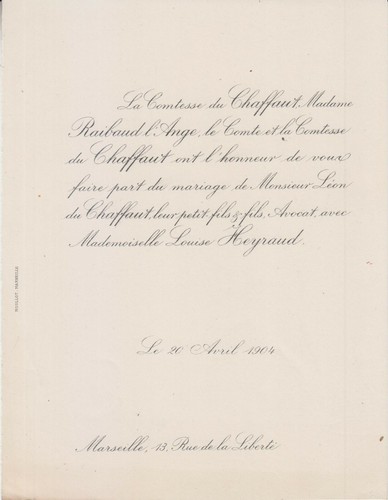 La Comtesse du Chaffaut, Madame
Raibaud l'Ange, le Comte et la Comtesse
du Chaffaut ont l'honneur de vous
faire part du mariage de Monsieur Léon
du Chaffaut, leur petit-fils & fils, Avocat, avec
Mademoiselle Louise Heyraud.
Le 20 Avril 1904
Marseille, 13, Rue de la Liberté